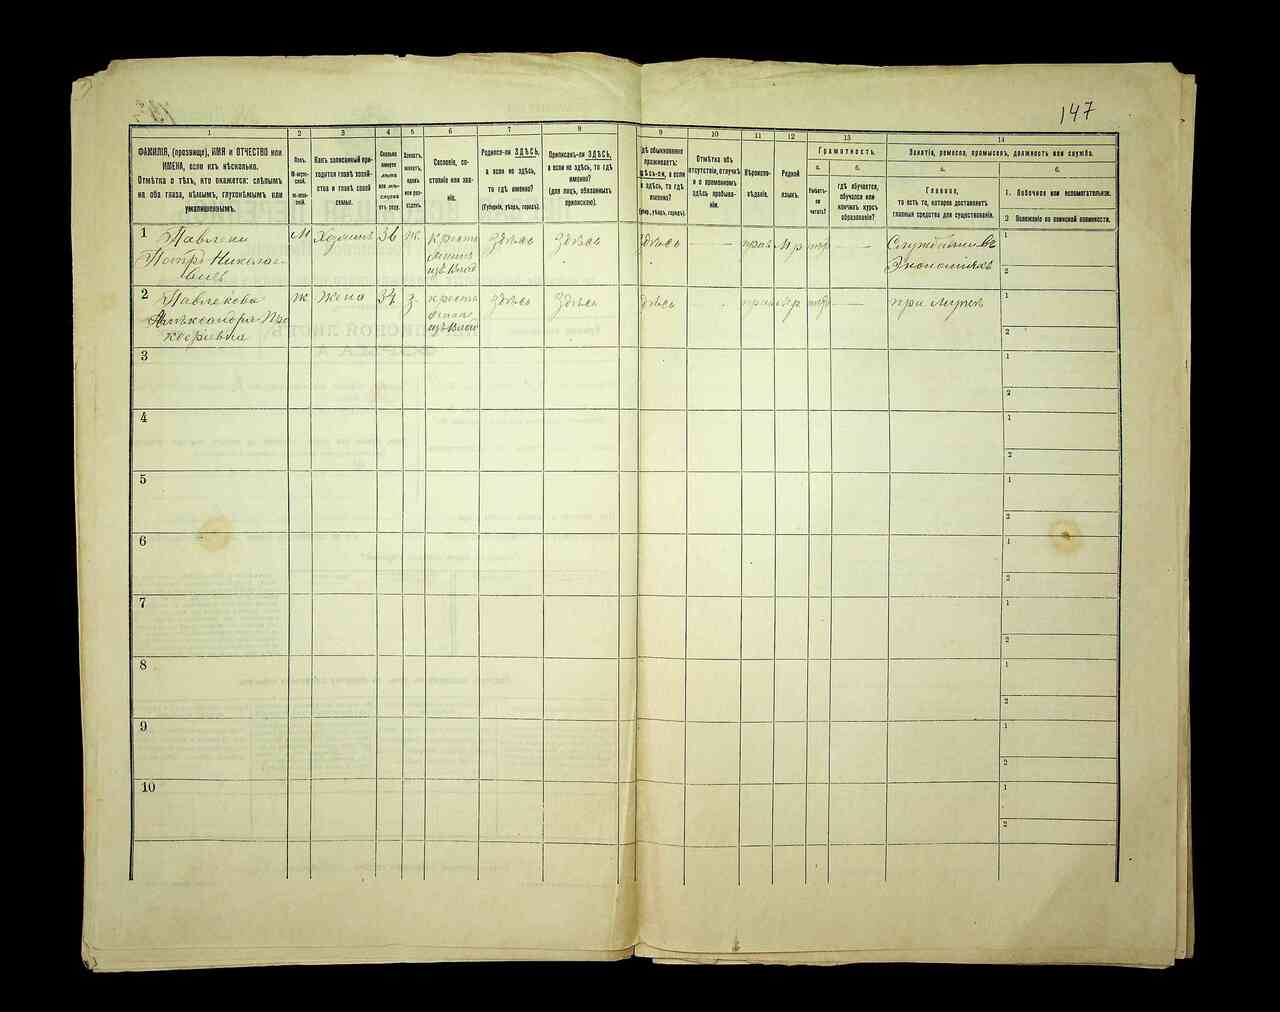 147
1 2 3 4 5 6 7 8 9 10 11 12 13 14
ФАМИЛІЯ, (прозвище), ИМЯ и ОТЧЕСТВО или
ИМЕНА, если ихъ нѣсколько.
Отмѣтка о тѣхъ, кто окажется: слѣпымъ
на оба глаза, нѣмымъ, глухонѣмымъ или
умалишеннымъ.
Полъ.
М-мужс-
кой.
Ж-жен-
скій.
Какъ записанный при-
ходится главѣ хозяй-
ства и главѣ своей
семьи.
Сколько
минуло
лѣтъ
или мѣ-
сяцевъ
отъ роду.
Холостъ,
женатъ,
вдовъ
или раз-
веденъ.
Сословіе, со-
стояніе или зва-
ніе.
Родился-ли ЗДѢСЬ,
а если не здѣсь,
то гдѣ именно?
(Губернія, уѣздъ, городъ).
Приписанъ-ли ЗДѢСЬ,
а если не здѣсь, то гдѣ
именно?
(для лицъ, обязанныхъ
припискою).
обыкновенно
проживаетъ:
здѣсь-ли, а если
не здѣсь, то гдѣ
именно?
(Губер., уѣздъ, городъ).
Отмѣтка объ
отсутствіи, отлучкѣ
и о временномъ
здѣсь пребыва-
ніи.
Вѣроиспо-
вѣданіе.
Родной
языкъ.
Грамотность.
а. б.
Умѣетъ-
ли
читать?
гдѣ обучается,
обучался или
кончилъ курсъ
образованія?
Занятіе, ремесло, промыселъ, должность или служба.
а. б.
Главное,
то есть то, которое доставляетъ
главныя средства для существованія.
1. Побочное или вспомогательное.
2 Положеніе по воинской повинности.
1
Петръ Николае-
вичъ
М Хозяинъ 36 ж. здѣсь здѣсь здѣсь — прав —
1
2
2
Александра
ж Жена 34 з. здѣсь здѣсь здѣсь — —
при мужѣ
1
2
3
1
2
4
1
2
5
1
2
6
1
2
7
1
2
8
1
2
9
1
2
10
1
2